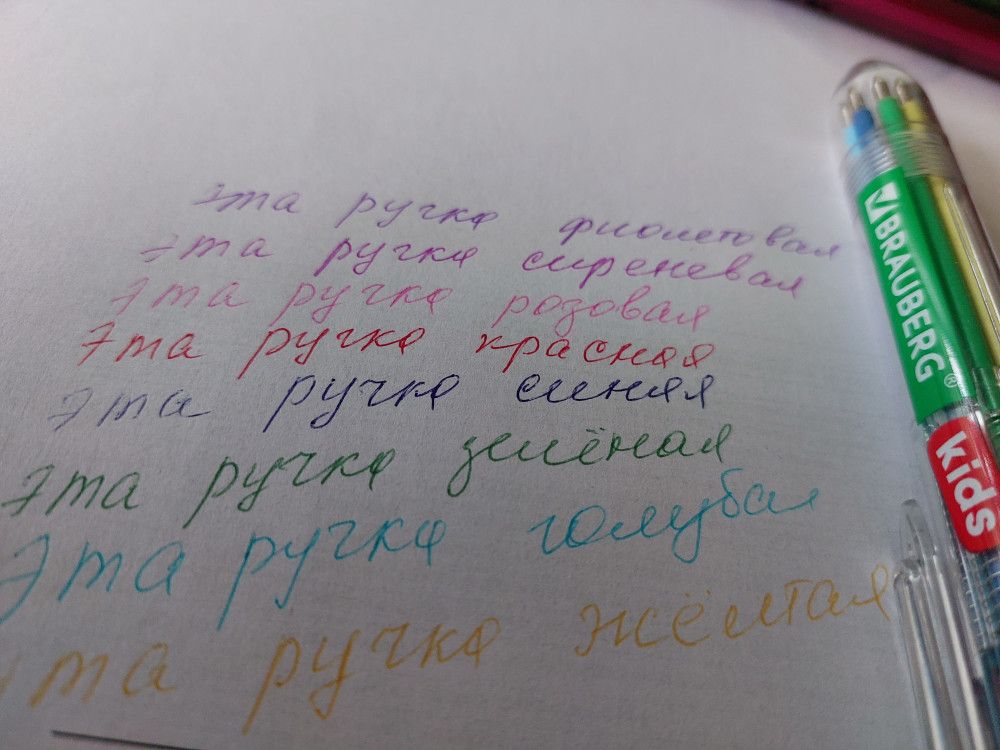 Эта ручка фиолетовая
Эта ручка сиреневая
Эта ручка розовая
Эта ручка красная
Эта ручка синяя
Эта ручка зелёная
Эта ручка голубая
Эта ручка жёлтая
BRAUBERG®
kids